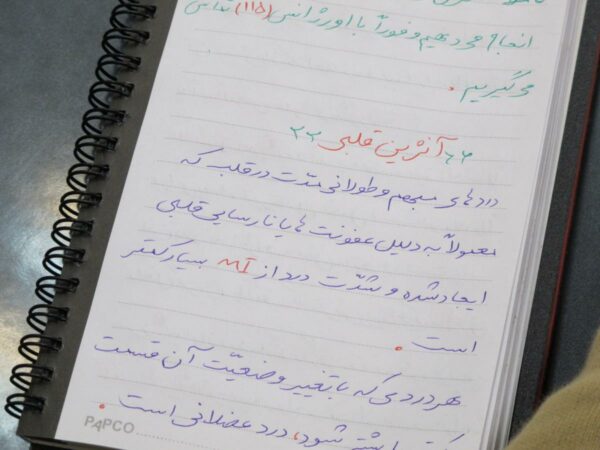 انجام می‌دهیم و فوراً با اورژانس (۱۱۵) تماس
می‌گیریم.
"آنژین قلبی"
دردهای مبهم و طولانی مدّت در قلب که
معمولاً به دلیل عفونت‌ها یا نارسایی قلبی
ایجاد شده و شدّت درد از MI بسیار کمتر
است.
هر دردی که با تغییر وضعیّت آن قسمت
بیشتر شود، درد عضلانی است.
PAPCO